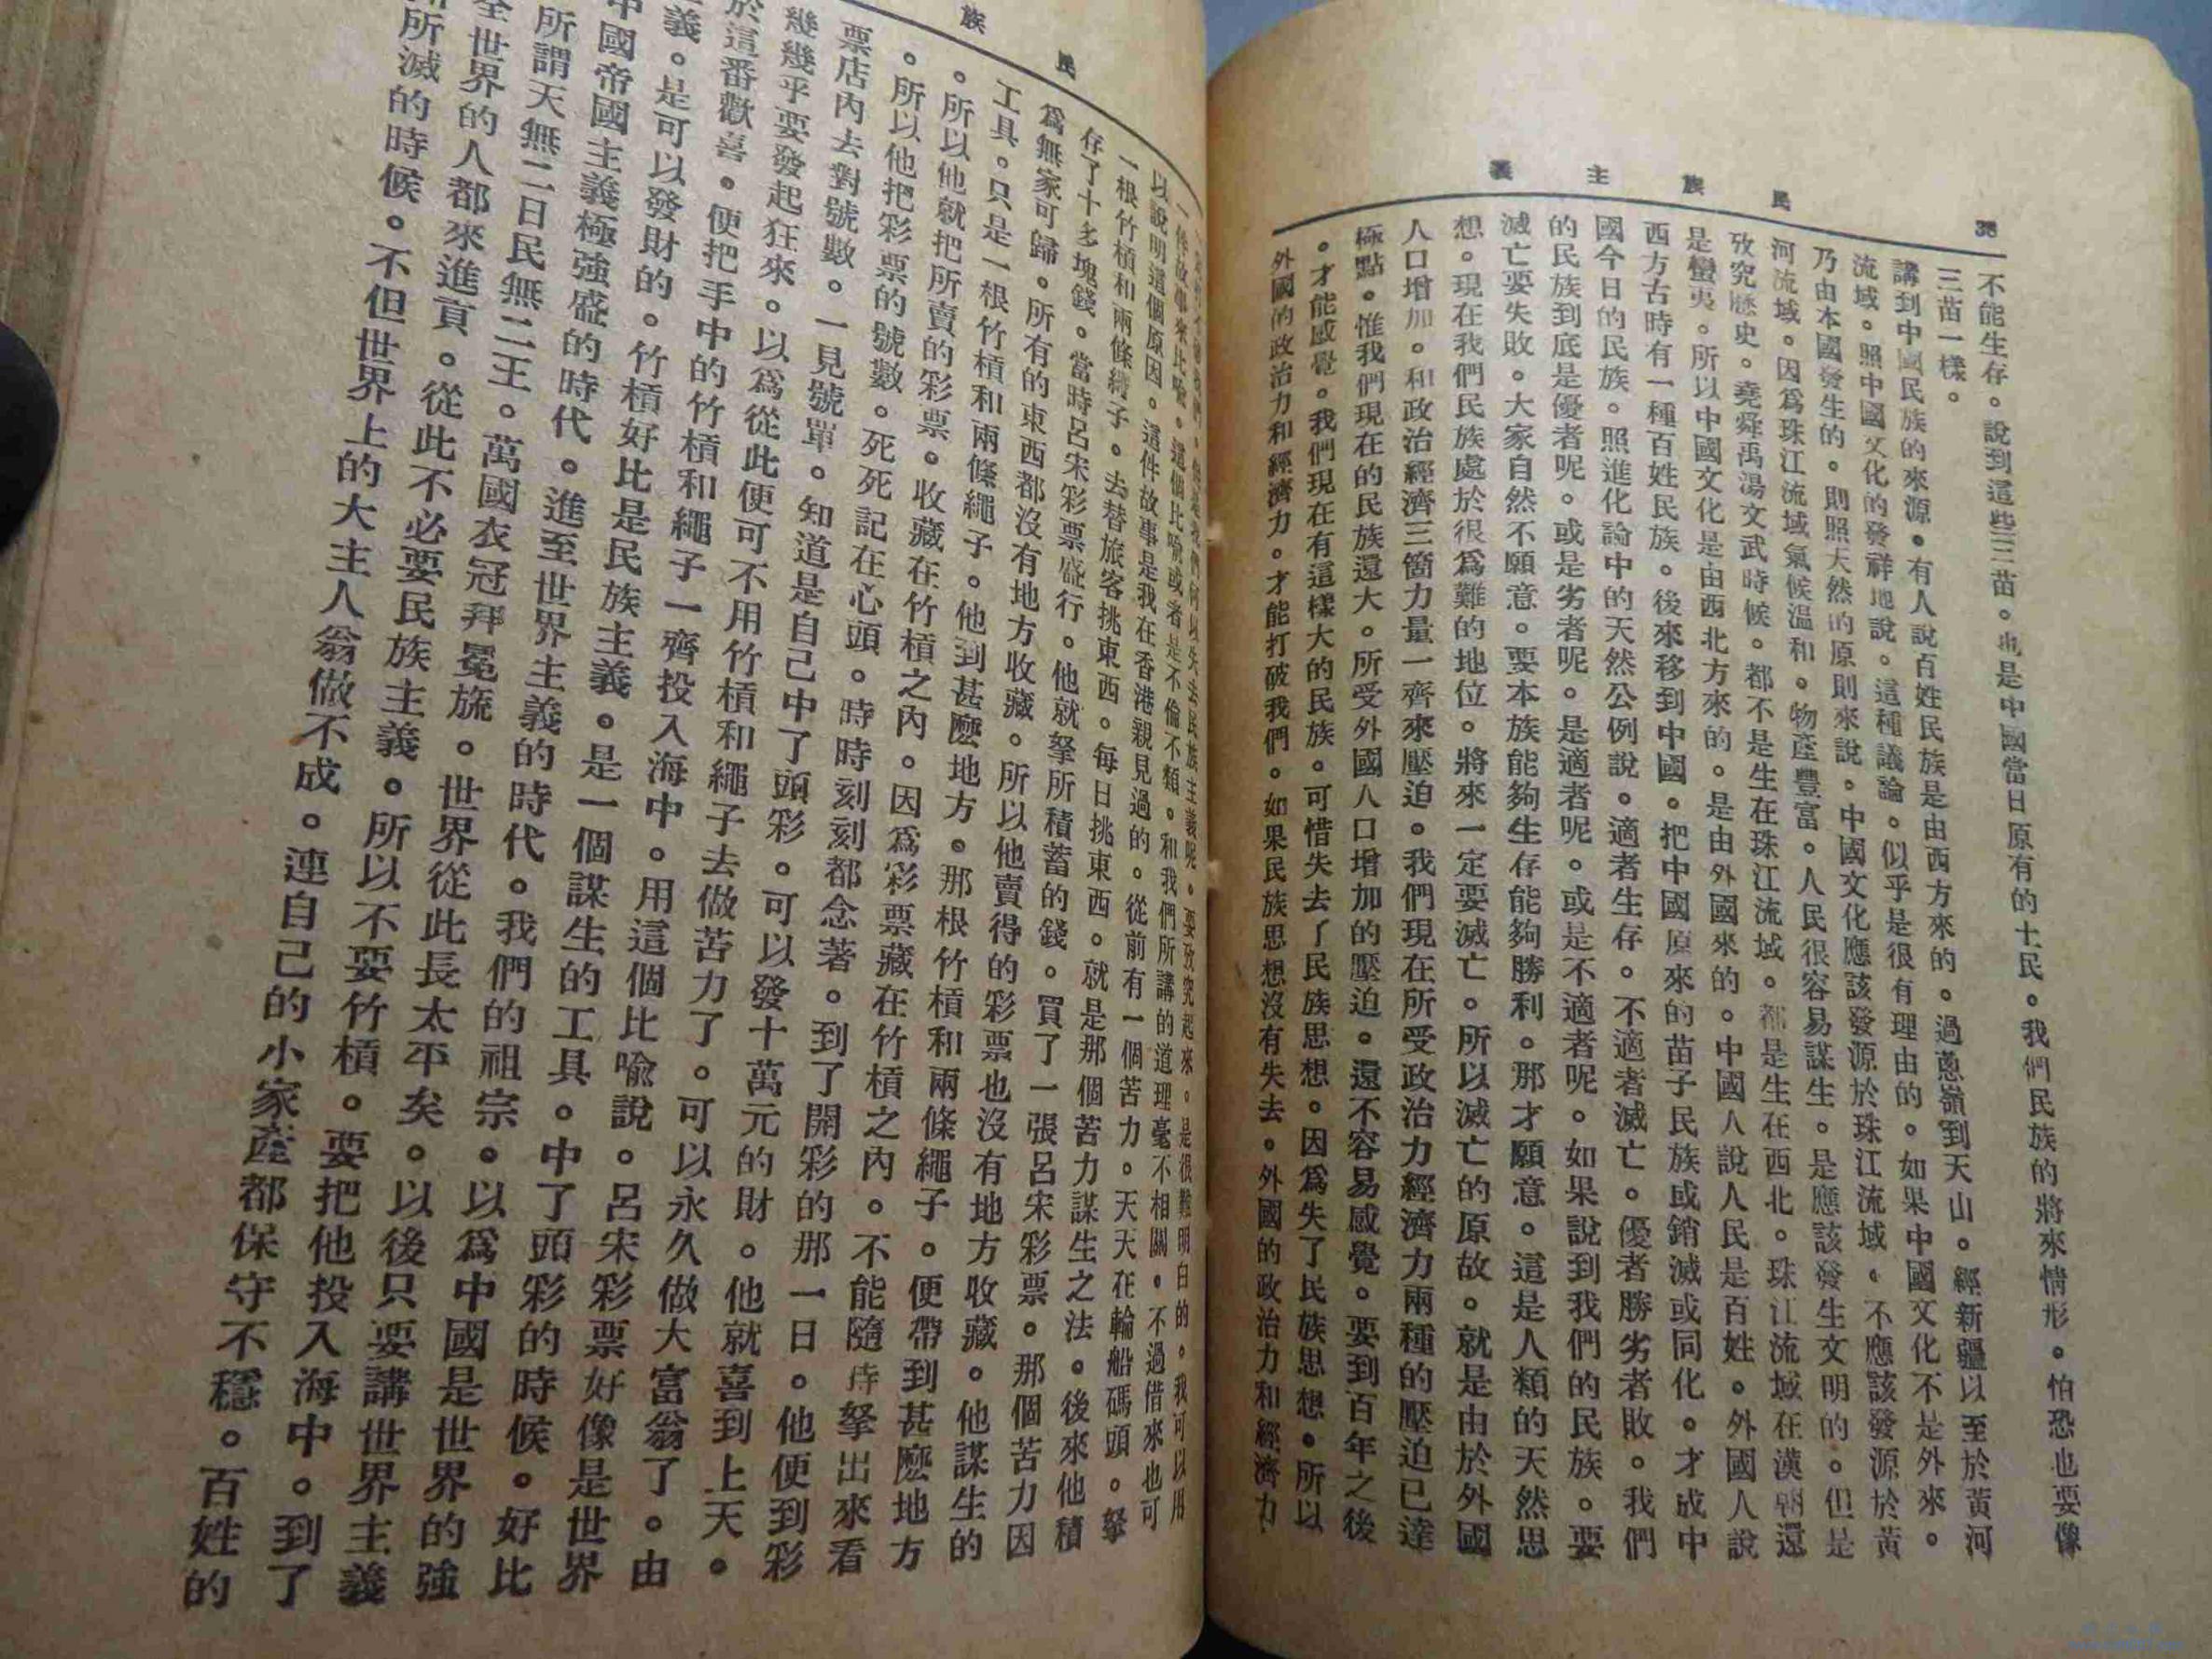 民族主義
38
不能生存。說到這些三苗。也是中國當日原有的土民。我們民族的將來情形。怕恐也要像
三苗一樣。
講到中國民族的來源。有人說百姓民族是由西方來的。過蔥嶺到天山。經新疆以至於黃河
流域。照中國文化的發祥地說。這種議論。似乎是很有理由的。如果中國文化不是外來。
乃由本國發生的。則照天然的原則來說。中國文化應該發源於珠江流域。不應該發源於黃
河流域。因爲珠江流域氣候溫和。物產豐富。人民很容易謀生。是應該發生文明的。但是
攷究歷史。堯舜禹湯文武時候。都不是生在珠江流域。都是生在西北。珠江流域在漢朝還
是蠻夷。所以中國文化是由西北方來的。是由外國來的。中國人說人民是百姓。外國人說
西方古時有一種百姓民族。後來移到中國。把中國原來的苗子民族或銷滅或同化。才成中
國今日的民族。照進化論中的天然公例說。適者生存。不適者滅亡。優者勝劣者敗。我們
的民族到底是優者呢。或是劣者呢。是適者呢。或是不適者呢。如果說到我們的民族。要
滅亡要失敗。大家自然不願意。要本族能夠生存能夠勝利。那才願意。這是人類的天然思
想。現在我們民族處於很爲難的地位。將來一定要滅亡。所以滅亡的原故。就是由於外國
人口增加。和政治經濟三箇力量一齊來壓迫。我們現在所受政治力經濟力兩種的壓迫已達
極點。惟我們現在的民族還大。所受外國人口增加的壓迫。還不容易感覺。要到百年之後
。才能感覺。我們現在有這樣大的民族。可惜失去了民族思想。因爲失了民族思想。所以
外國的政治力和經濟力。才能打破我們。如果民族思想沒有失去。外國的政治力和經濟力
民族
何以失去民族主義呢。要攷究起來。是很難明白的。我可以用
一件故事來比喻。這個比喻或者是不倫不類。和我們所講的道理毫不相關。不過借來也可
以說明這個原因。這件故事是我在香港親見過的。從前有一個苦力。天天在輪船碼頭。拏
一根竹槓和兩條繩子。去替旅客挑東西。每日挑東西。就是那個苦力謀生之法。後來他積
存了十多塊錢。當時呂宋彩票盛行。他就拏所積蓄的錢。買了一張呂宋彩票。那個苦力因
爲無家可歸。所有的東西都沒有地方收藏。所以他賣得的彩票也沒有地方收藏。他謀生的
工具。只是一根竹槓和兩條繩子。他到甚麼地方。那根竹槓和兩條繩子。便帶到甚麼地方
。所以他就把所賣的彩票。收藏在竹槓之內。因爲彩票藏在竹槓之內。不能隨時拏出來看
。所以他把彩票的號數。死死記在心頭。時時刻刻都念著。到了開彩的那一日。他便到彩
票店內去對號數。一見號單。知道是自己中了頭彩。可以發十萬元的財。他就喜到上天。
幾幾乎要發起狂來。以爲從此便可不用竹槓和繩子去做苦力了。可以永久做大富翁了。由
於這番歡喜。便把手中的竹槓和繩子一齊投入海中。用這個比喻說。呂宋彩票好像是世界
義。是可以發財的。竹槓好比是民族主義。是一個謀生的工具。中了頭彩的時候。好比
中國帝國主義極強盛的時代。進至世界主義的時代。我們的祖宗。以爲中國是世界的強
所謂天無二日民無二王。萬國衣冠拜冕旒。世界從此長太平矣。以後只要講世界主義
全世界的人都來進貢。從此不必要民族主義。所以不要竹槓。要把他投入海中。到了
所滅的時候。不但世界上的大主人翁做不成。連自己的小家產都保守不穩。百姓的